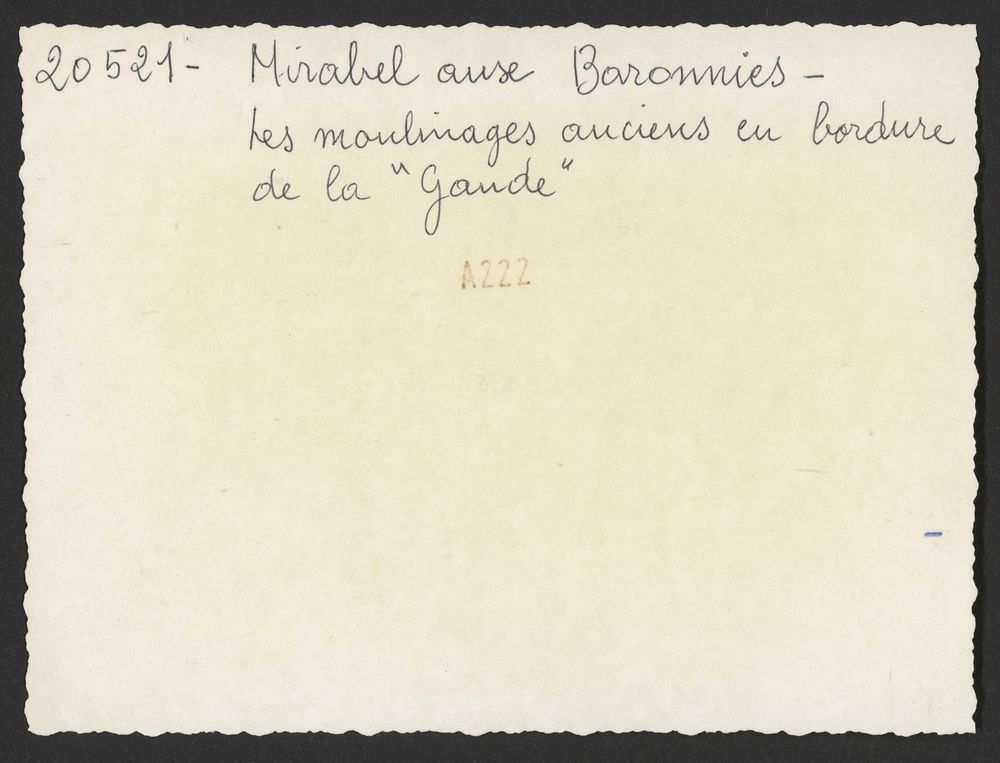 20521- Mirabel aux Baronnies -
Les moulinages anciens en bordure
de la "Gaude"
A222